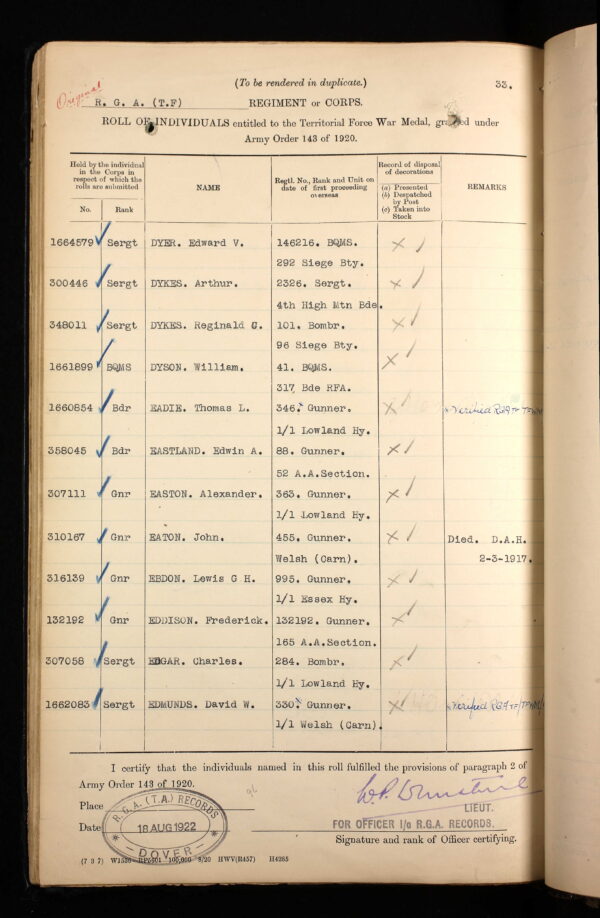 (To be rendered in duplicate.) 33.
Original
R. G. A. (T.F) REGIMENT OR CORPS.
ROLL OF INDIVIDUALS entitled to the Territorial Force War Medal, granted under
Army Order 143 of 1920.
Held by the individual in the Corps in respect of which the rolls are submitted
No. Rank
NAME
Regtl. No., Rank and Unit on date of first proceeding overseas
Record of disposal of decorations
(a) Presented
(b) Despatched by Post
(c) Taken into Stock
REMARKS
1664579 Sergt DYER. Edward V. 146216. BQMS.
292 Siege Bty.
300446 Sergt DYKES. Arthur. 2326. Sergt.
4th High Mtn Bde.
348011 Sergt DYKES. Reginald G. 101. Bombr.
96 Siege Bty.
1661899 BQMS DYSON. William. 41. BQMS.
317 Bde RFA.
1660854 Bdr EADIE. Thomas L. 346. Gunner. Verified RGA TF
1/1 Lowland Hy.
358045 Bdr EASTLAND. Edwin A. 88. Gunner.
52 A.A.Section.
307111 Gnr EASTON. Alexander. 363. Gunner.
1/1 Lowland Hy.
310167 Gnr EATON. John. 455. Gunner. Died. D.A.H.
Welsh (Carn). 2-3-1917.
316139 Gnr EBDON. Lewis G H. 995. Gunner.
1/1 Essex Hy.
132192 Gnr EDDISON. Frederick. 132192. Gunner.
165 A.A.Section.
307058 Sergt EDGAR. Charles. 284. Bombr.
1/1 Lowland Hy.
1662083 Sergt EDMUNDS. David W. 330. Gunner. Verified RGA TF/TFWM/
1/1 Welsh (Carn).
I certify that the individuals named in this roll fulfilled the provisions of paragraph 2 of
Army Order 143 of 1920.
Place
LIEUT.
Date
R.G.A. (T.A.) RECORDS
18 AUG 1922
DOVER
FOR OFFICER I/c R.G.A. RECORDS.
Signature and rank of Officer certifying.
(7 3 7) W1536 100,000 8/20 HWV(R457) H4265